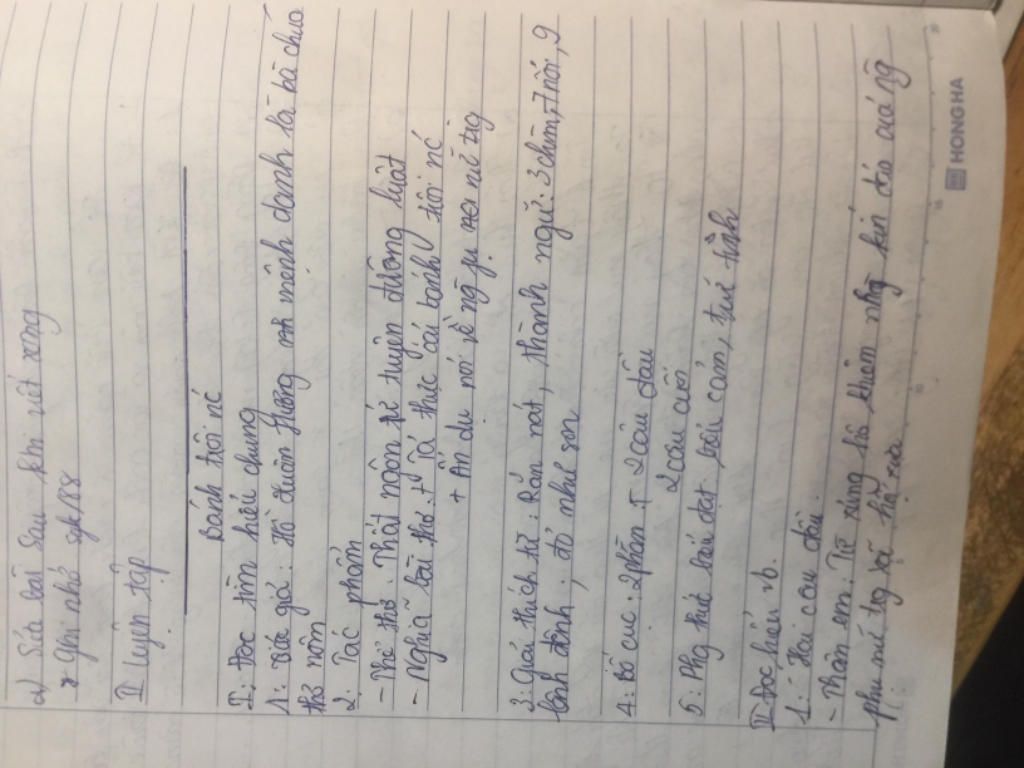 d) Sửa bài sau khi viết xong
* Ghi nhớ sgk/88
II Luyện tập
Bánh trôi nc
I: Đọc tìm hiểu chung
1: Tác giả: Hồ Xuân Hương mệnh danh là bà chúa
thơ nôm
2: Tác phẩm
- Thể thơ: Thất ngôn tứ tuyện đường luật
- Nghĩa bài thơ: + Tả thực cái bánh trôi nc
+ Ẩn dụ nói về ng
3: Giải thích từ: Rắn nát, thành ngữ: 3 chìm, 7 nổi, 9
lênh đênh, đỏ như son
4: Bố cục: 2 phần 2 câu đầu
2 câu cuối
5: Phg thức biểu đạt biểu cảm, tự
II Đọc hiểu vb.
1: Hai câu đầu.
- Thân em: Từ xưng hô khiêm kín đáo của ng
phụ nữ trg xã hội xưa
HONG HA